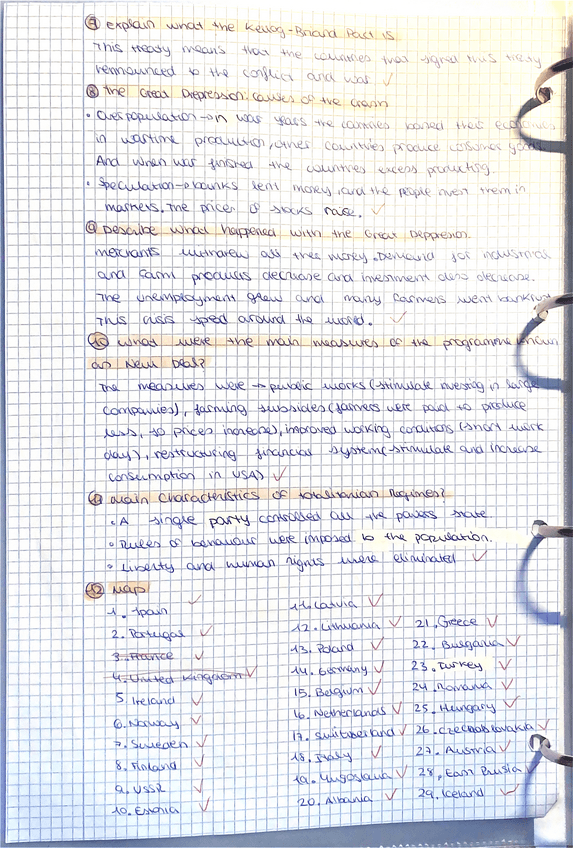 ⑦ explain what the Kellog-Briand Pact is
This treaty means that the countries that signed this treaty
rennounced to the conflict and war ✓
⑧ The Great Depression: causes of the crash
• Overpopulation → in war years the countries based their
in wartime production, other countries produce consumer
And when war finished the countries excess producting.
• Speculation → banks lent money and the people invest them in
markets. The prices of stocks raise. ✓
⑨ Describe what happened with the Great Depression.
merchants withdrew all their money. Demand for industrial
and farm products decrease and investment also decrease.
The unemployment grew and many farmers went bankrupt
This crisis spred around the world. ✓
⑩ what were the main measures of the programme known
as New Deal?
The measures were → public works (stimulate investing in large
companies), farming subsidies (farmers were paid to produce
less, so prices increase), improved working conditions (short work
day), restructuring financial system (stimulate and increase
consumption in USA) ✓
⑪ main characteristics of totalitarian Regimes?
• A single party controlled all the powers state.
• Rules of behaviour were imposed to the population.
• Liberty and human rights were eliminated ✓
⑫ Map
1. Spain ✓
2. Portugal ✓
3. France ✓
4. United Kingdom ✓
5. Ireland ✓
6. Norway ✓
7. Sweden ✓
8. Finland ✓
9. USSR ✓
10. Estonia ✓
11. Latvia ✓
12. Lithuania ✓
13. Poland ✓
14. Germany ✓
15. Belgium ✓
16. Netherlands ✓
17. Switzerland ✓
18. Italy ✓
19. Yugoslavia ✓
20. Albania ✓
21. Greece ✓
22. Bulgaria ✓
23. Turkey ✓
24. Romania ✓
25. Hungary ✓
26. Czechoslovakia ✓
27. Austria ✓
28. East Prussia ✓
29. Iceland ✓